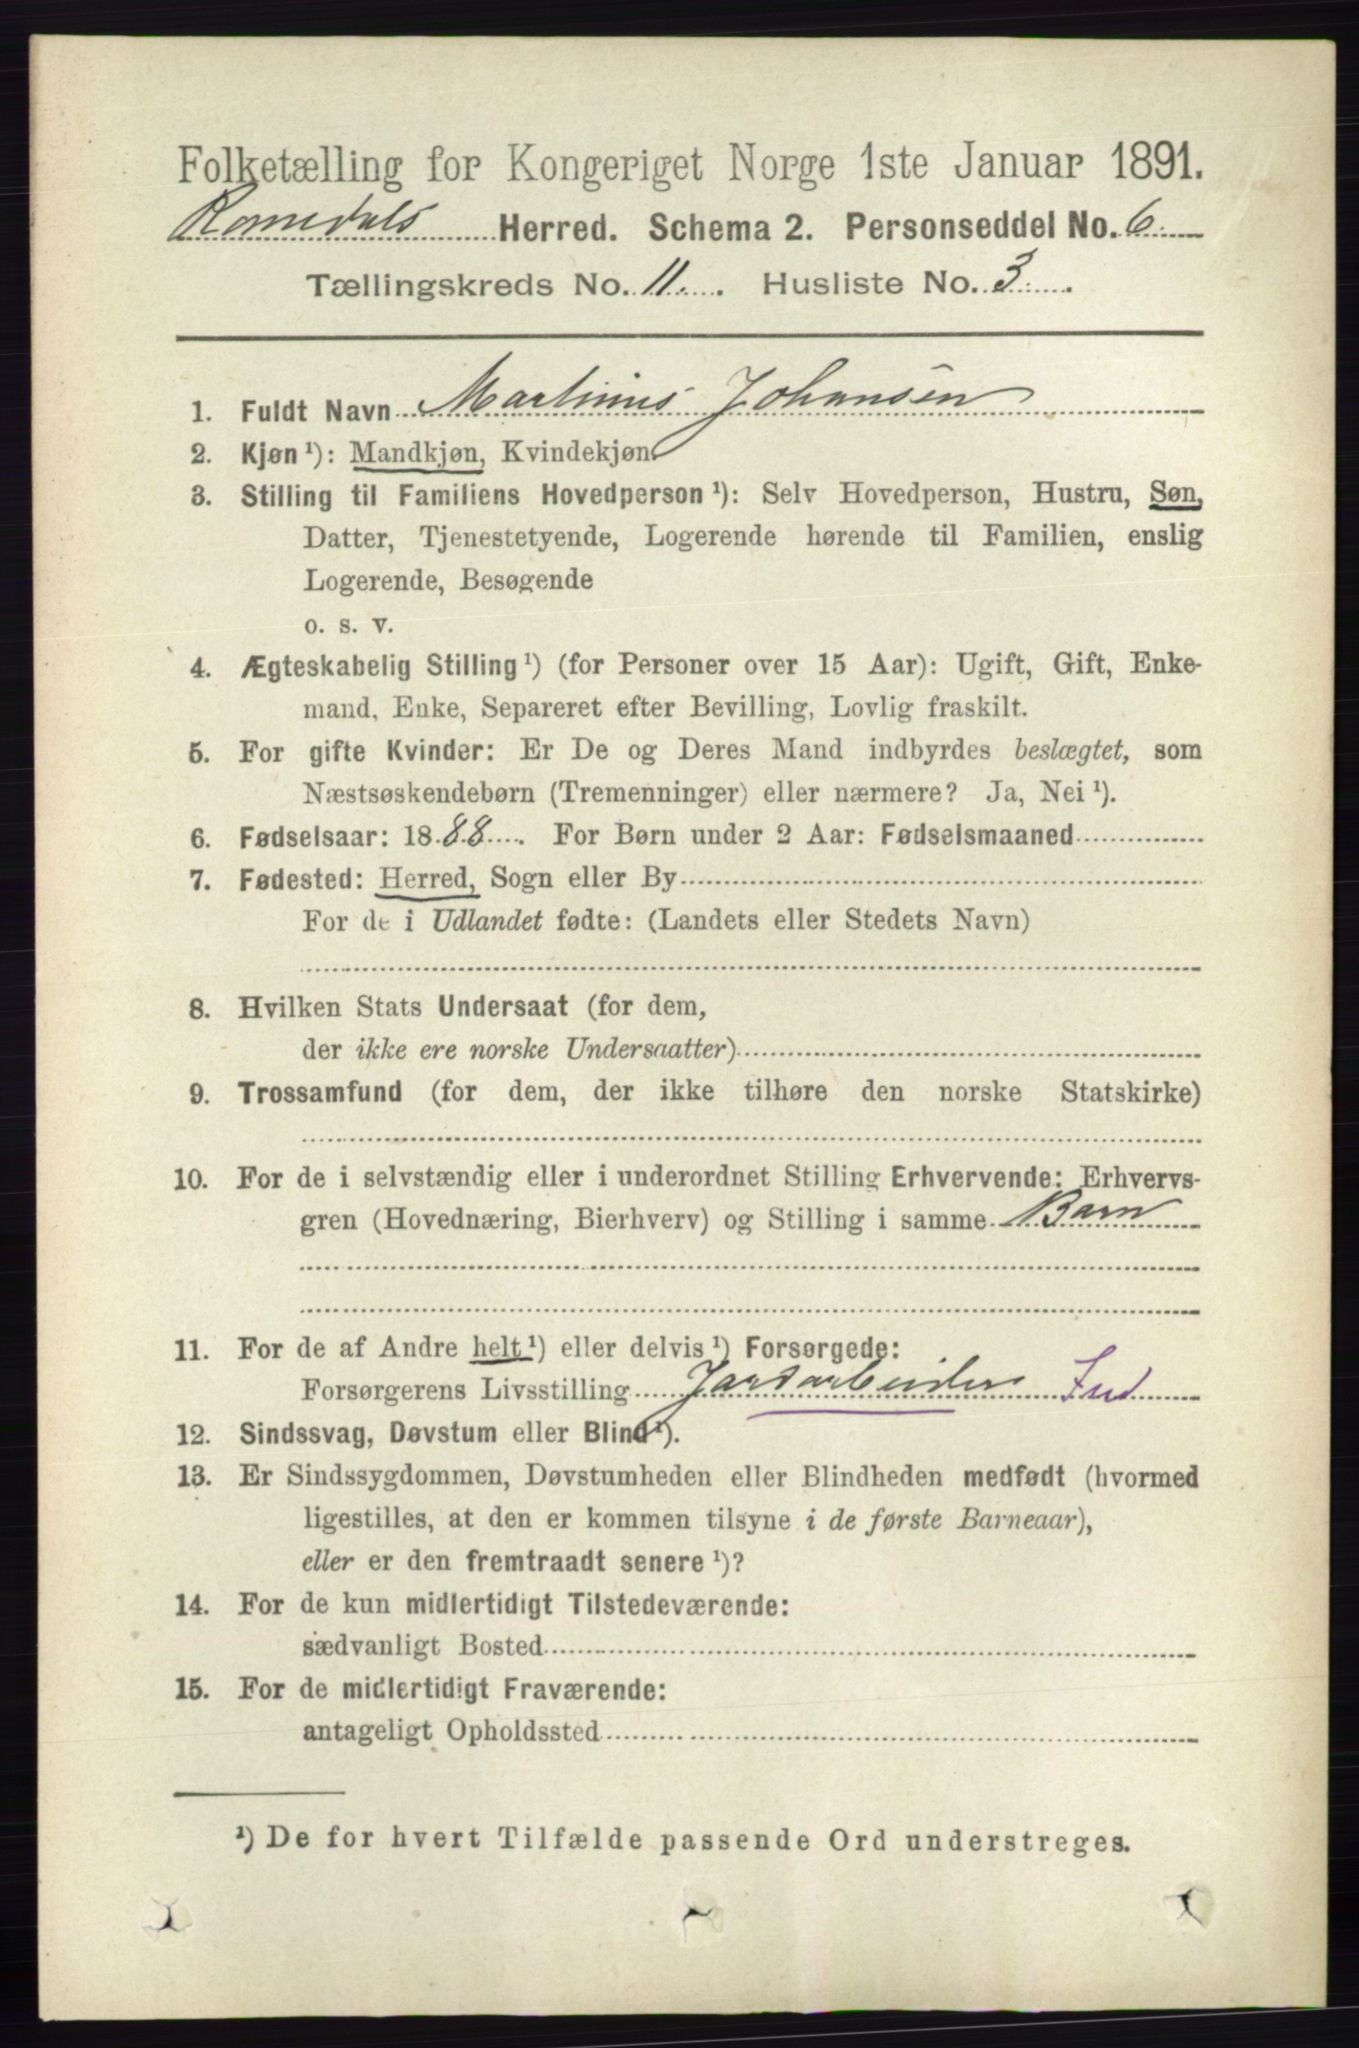 Folketælling for Kongeriget Norge 1ste Januar 1891.
Romedals Herred. Schema 2. Personseddel No. 6
Tællingskreds No. 11. Husliste No. 3.
1. Fuldt Navn Martinus Johansen
2. Kjøn ¹): Mandkjøn, Kvindekjøn
3. Stilling til Familiens Hovedperson ¹): Selv Hovedperson, Hustru, Søn,
Datter, Tjenestetyende, Logerende hørende til Familien, enslig
Logerende, Besøgende
o. s. v.
4. Ægteskabelig Stilling ¹) (for Personer over 15 Aar): Ugift, Gift, Enke-
mand, Enke, Separeret efter Bevilling, Lovlig fraskilt.
5. For gifte Kvinder: Er De og Deres Mand indbyrdes beslægtet, som
Næstsøskendebørn (Tremenninger) eller nærmere? Ja, Nei ¹).
6. Fødselsaar: 1888. For Børn under 2 Aar: Fødselsmaaned
7. Fødested: Herred, Sogn eller By
For de i Udlandet fødte: (Landets eller Stedets Navn)
8. Hvilken Stats Undersaat (for dem,
der ikke ere norske Undersaatter)
9. Trossamfund (for dem, der ikke tilhøre den norske Statskirke)
10. For de i selvstændig eller i underordnet Stilling Erhvervende: Erhvervs-
gren (Hovednæring, Bierhverv) og Stilling i samme Barn
11. For de af Andre helt ¹) eller delvis ¹) Forsørgede:
Forsørgerens Livsstilling Jordarbeider
12. Sindssvag, Døvstum eller Blind ¹).
13. Er Sindssygdommen, Døvstumheden eller Blindheden medfødt (hvormed
ligestilles, at den er kommen tilsyne i de første Barneaar),
eller er den fremtraadt senere ¹)?
14. For de kun midlertidigt Tilstedeværende:
sædvanligt Bosted
15. For de midlertidigt Fraværende:
antageligt Opholdssted
¹) De for hvert Tilfælde passende Ord understreges.